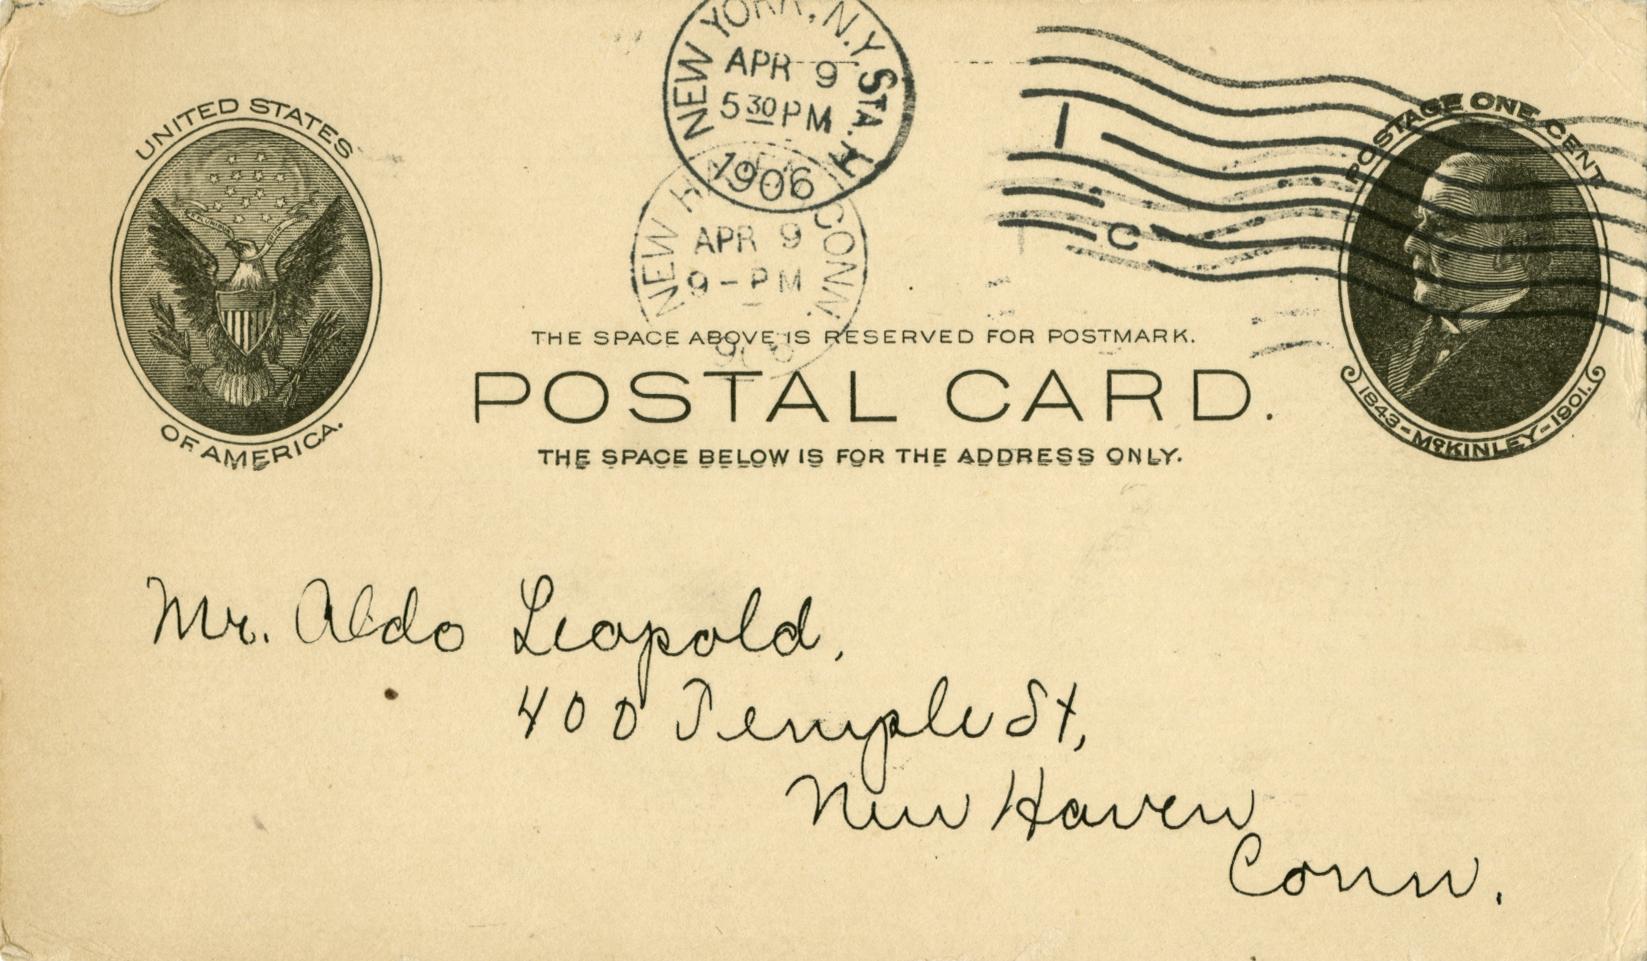 NEW YORK, N.Y. STA.
APR 9
5 30 PM
1906
1
C
UNITED STATES
OF AMERICA.
POSTAGE ONE CENT
1843-McKINLEY-1901.
NEW HAVEN CONN.
APR 9
9-PM
THE SPACE ABOVE IS RESERVED FOR POSTMARK.
POSTAL CARD.
THE SPACE BELOW IS FOR THE ADDRESS ONLY.
Mr. Aldo Leopold,
400 Temple St,
New Haven
Conn.